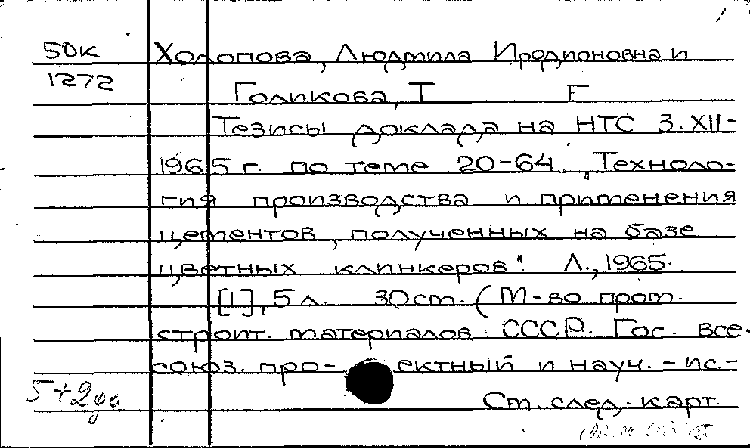 5DK Холопова, Людмила Иродионовна и
1272
Голикова, Т Е
Тезисы доклада на НТС 3.XII-
1965 г. по теме 20-64 „Техноло-
гия производства и применения
цементов, полученных на базе
цветных клинкеров". Л., 1965.
[1], 5 л. 30 cm. (М-во пром.
строит. материалов СССР. Гос. все-
союз. про-ектный и науч.-ис-
5+2
Ст. след. карт.